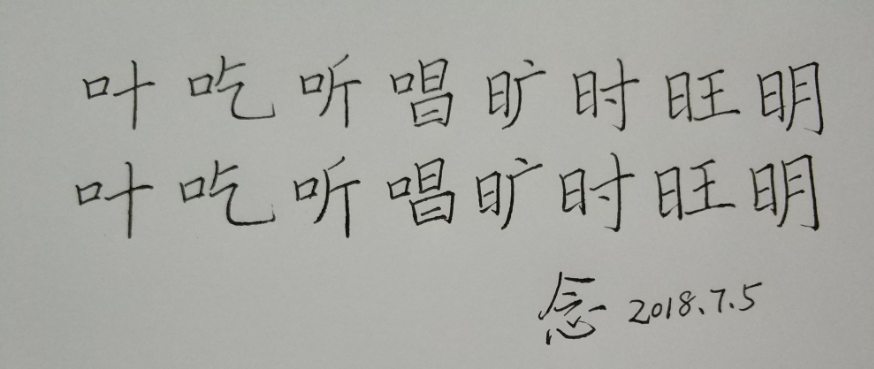 叶吃听唱旷时旺明
叶吃听唱旷时旺明
念 2018.7.5